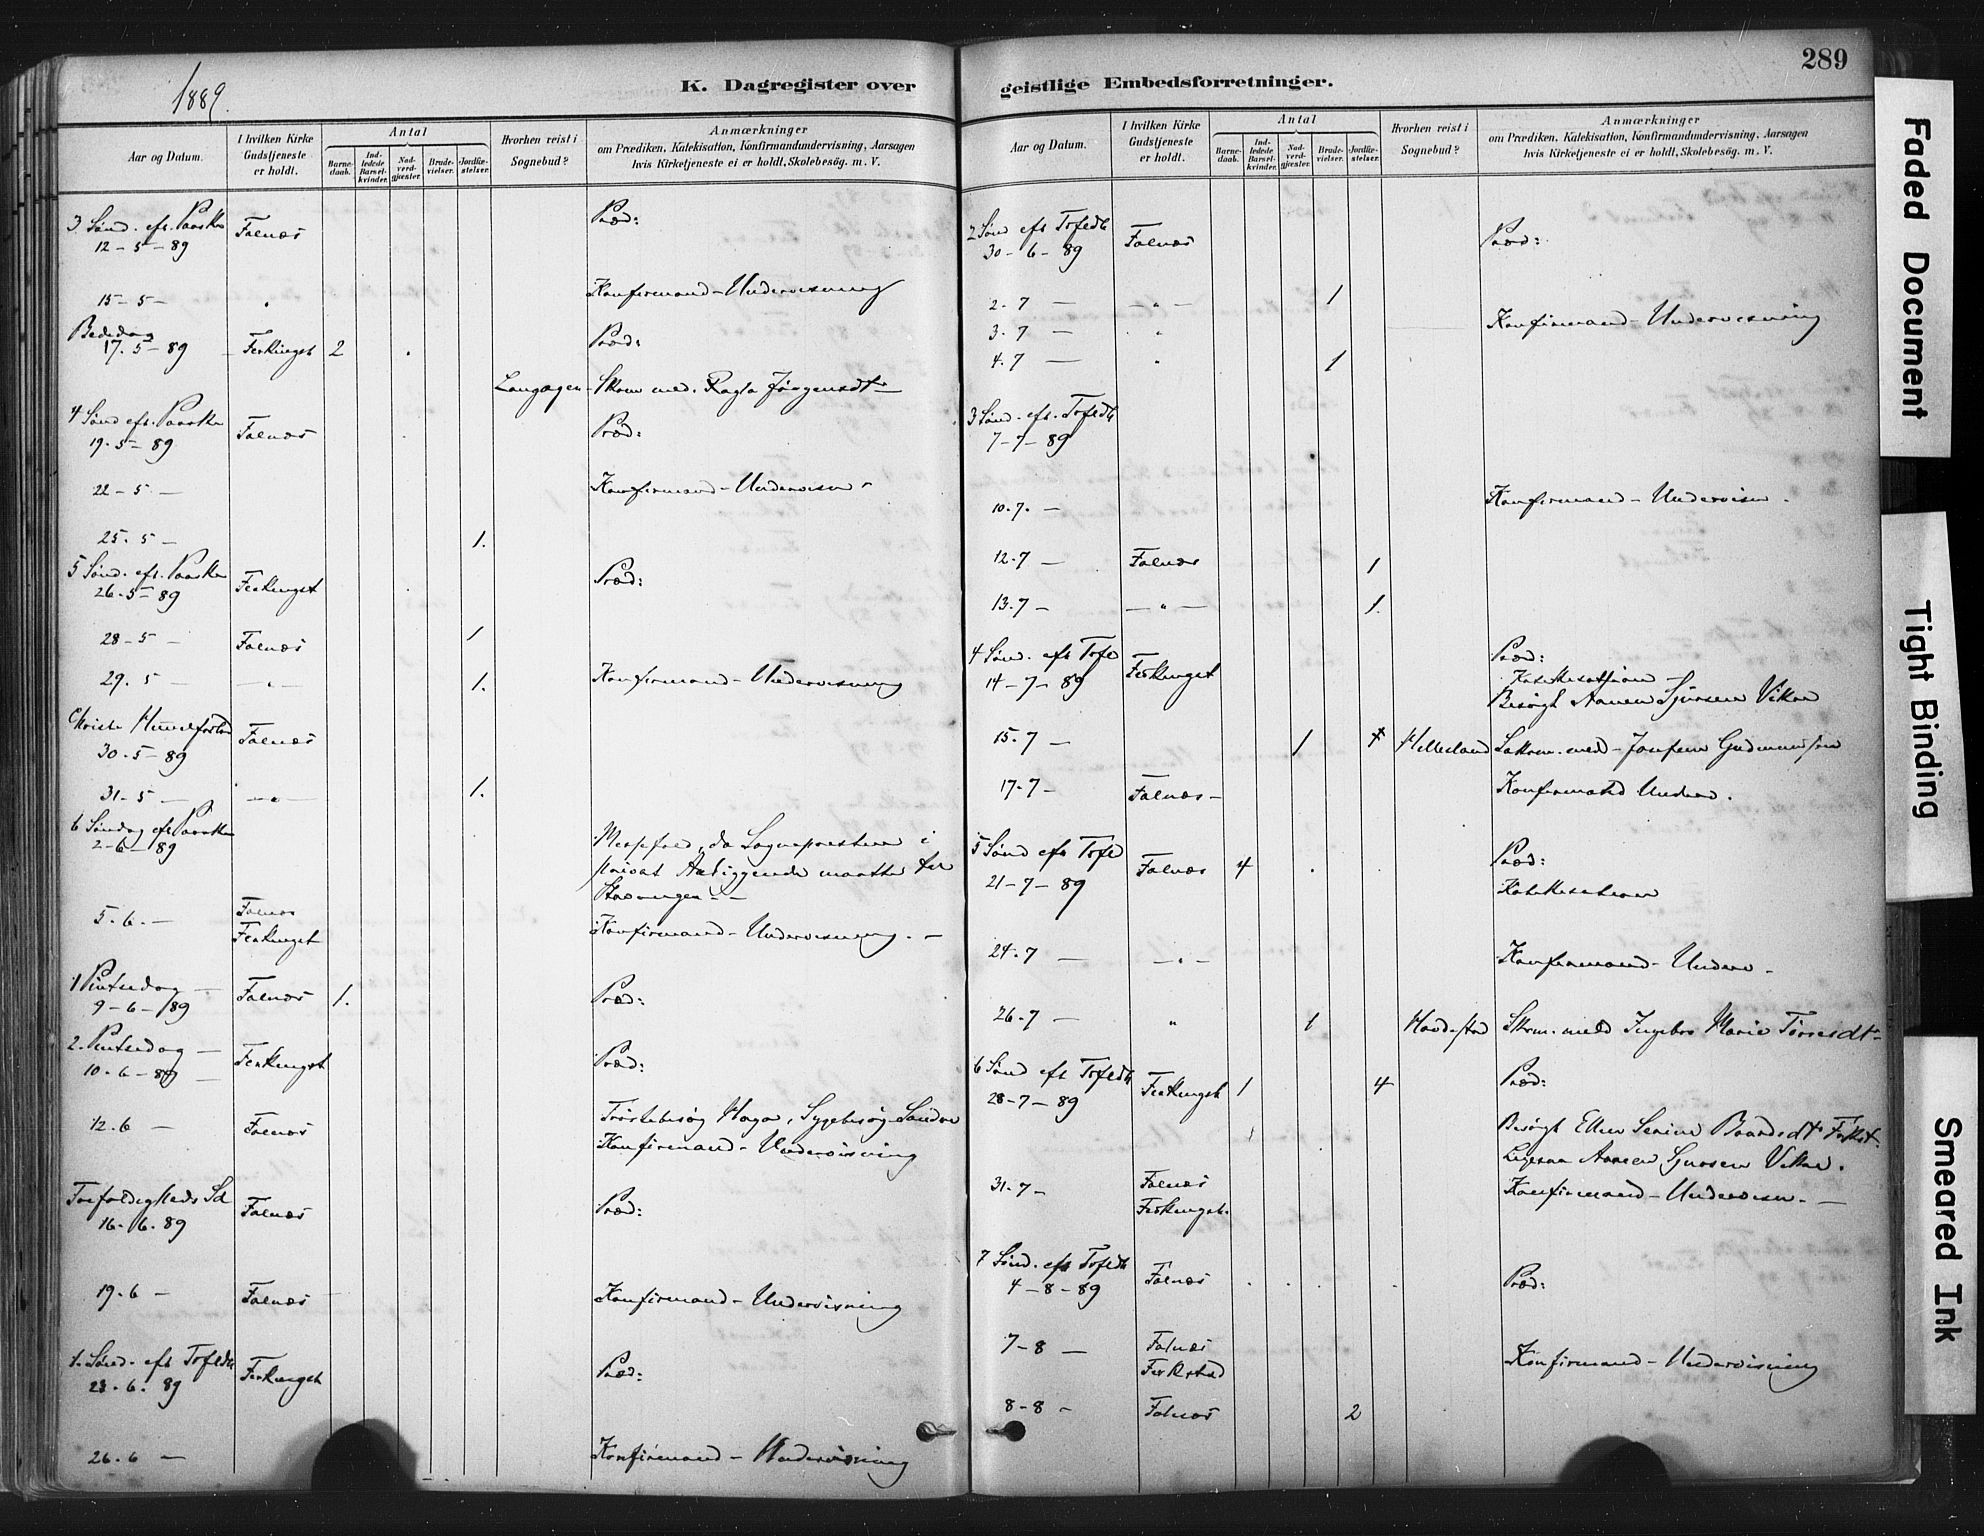 1889.
K. Dagregister over
Aar og Datum.
I hvilken Kirke Gudstjeneste er holdt.
Antal
Barne-daab.
Ind-ledede Barsel-kvinder.
Nad-verd-gjæster.
Brude-vielser.
Jordfæ-stelser.
Hvorhen reist i Sognebud?
Anmærkninger
om Prædiken, Katekisation, Konfirmandundervisning, Aarsagen
hvis Kirketjeneste ei er holdt, Skolebesøg. m. V.
3 Sønd. eft. Paaske Falnæs Præd:
12-5-89
15-5- " Konfirmand-Undervisning
Bededag
17.5-89 Ferkingst 2 Præd:
Langaagen Skrm med. Ragla Jørgensdtr
4 Sønd eft. Paaske Falnæs Præd:
19-5-89
22-5- Konfirmand-Undervisn-
25.5- 1.
5 Sønd. eft. Paaske Ferkingst Præd:
26-5-89
28-5- Falnæs 1
29.5- -"- 1. Konfirmand-Undervisning
Christi Himmelfartsd Falnæs
30-5-89
31-5- -"- 1.
6 Søndag eft Paaske
2-6-89 Messefald, da Sognepresten i
privat Anliggende maatte til
Stavanger--
5-6.- Falnæs
Ferkingst Konfirmand-Undervisning.-
1 Pintsedag- Falnæs 1. Præd:
9-6-89
2. Pintsedag- Ferkingst Præd:
10-6-89
12.6- Falnæs Trøstebesøg Haga, Sygebesøg Sandve
Konfirmand-Undervisning
Trefoldigheds Sd Falnæs Præd:
16-6.89
19.6- Falnæs Konfirmand-Undervisning
1. Sønd. eft Trfldh Ferkingst Præd:
23-6.89
26.6- Konfirmand-Undervisning
geistlige Embedsforretninger.
289
Aar og Datum.
I hvilken Kirke Gudstjeneste er holdt.
Antal
Barne-daab.
Ind-ledede Barsel-kvinder.
Nad-verd-gjæster.
Brude-vielser.
Jordfæ-stelser.
Hvorhen reist i Sognebud?
Anmærkninger
om Prædiken, Katekisation, Konfirmandundervisning, Aarsagen
hvis Kirketjeneste ei er holdt, Skolebesøg. m. V.
2 Søn eft Trfldh Falnæs Præd:
30-6-89
2-7- -"- 1
3.7- " Konfirmand-Undervisning
4.7- " 1
3 Sønd. eft. Trfldh
7-7-89
10.7.- Konfirmand-Undervisn.
12-7- Falnæs 1
13.7- -"- 1.
4 Sønd. eft Trfl Ferkingst Præd:
14-7-89 Katekisation-
Besøgt Aanen Sjursen Vikre
15.7- 1 Helleland Sakrm. med-Josefem Gudmundsen
17-7- Falnæs- Konfirmand Underv.
5 Sønd eft Trfl Falnæs 4 Præd:
21-7-89 Katekisation
24.7- -"- Konfirmand-Underv-
26-7- " 1 Skrm. med Ingebor Marie Tørresdtr
6 Sønd eft Trfldh Ferkingst 1 4 Præd:
28-7-89
Besøgt Ellen Serine Baardsdtr Ferkst.
Ligesaa Aanen Sjursen Vikre.
31-7- Falnæs
Ferkingst. Konfirmand-Undervisn.-
7 Sønd. eft Trfldh Falnæs Præd:
4-8-89
7-8- Falnæs
Ferkstad Konfirmand-Undervisning
8-8- Falnæs 2
Faded Document
Tight Binding
Smeared Ink